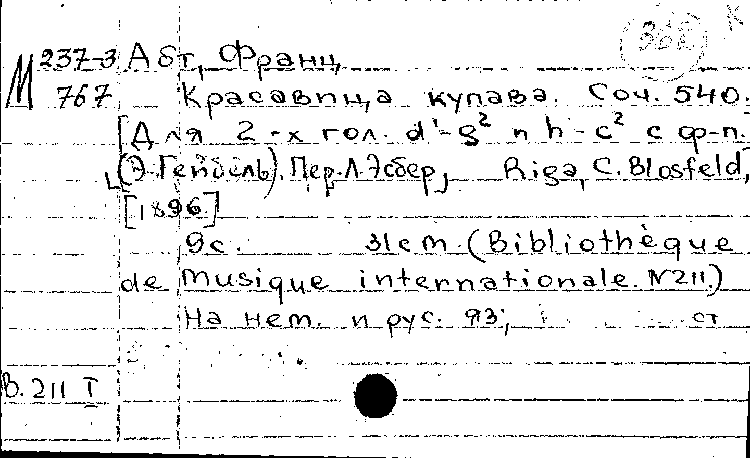 М 237-3 Абт, Франц
767 Красавица купава. Соч. 540.
[Для 2-х гол. d'-g² и h-c² с ф-п.
(Э. Гейбель). Пер. Л. Эсбер, Riga, C. Blosfeld,
[1896]
9с. 31см. (Bibliothèque
de musique internationale. N211.)
На нем. и рус. яз; ст
В. 211 I